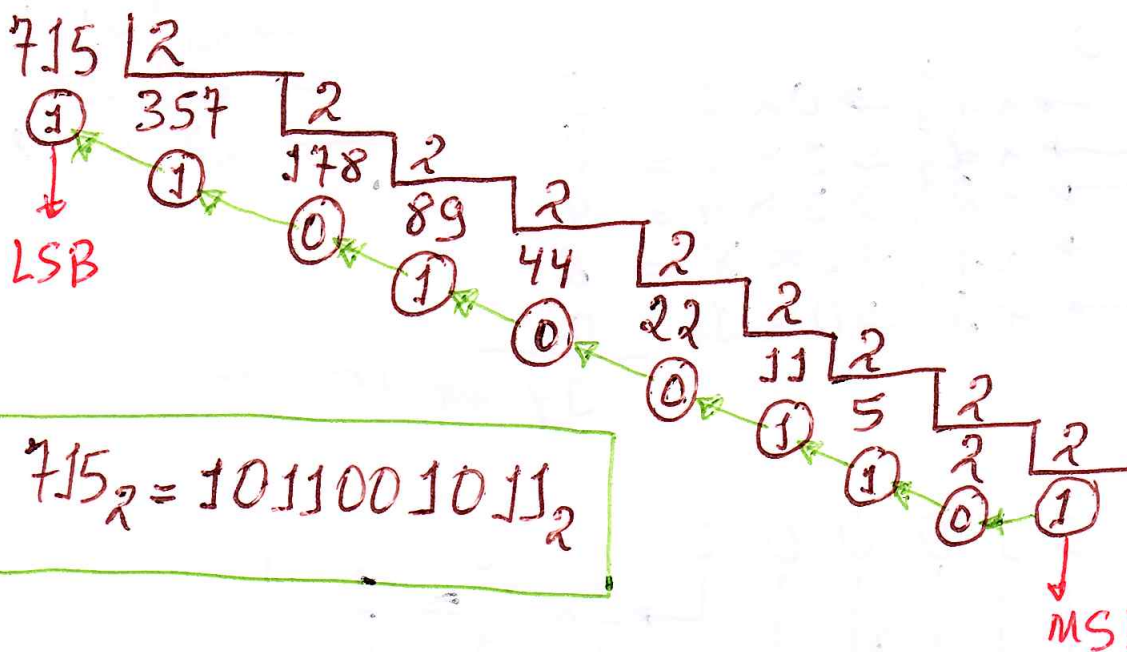 715 2
1 357 2
1 178 2
0 89 2
1 44 2
0 22 2
0 11 2
1 5 2
1 2 2
0 1
LSB
MS
715₂ = 1011001011₂